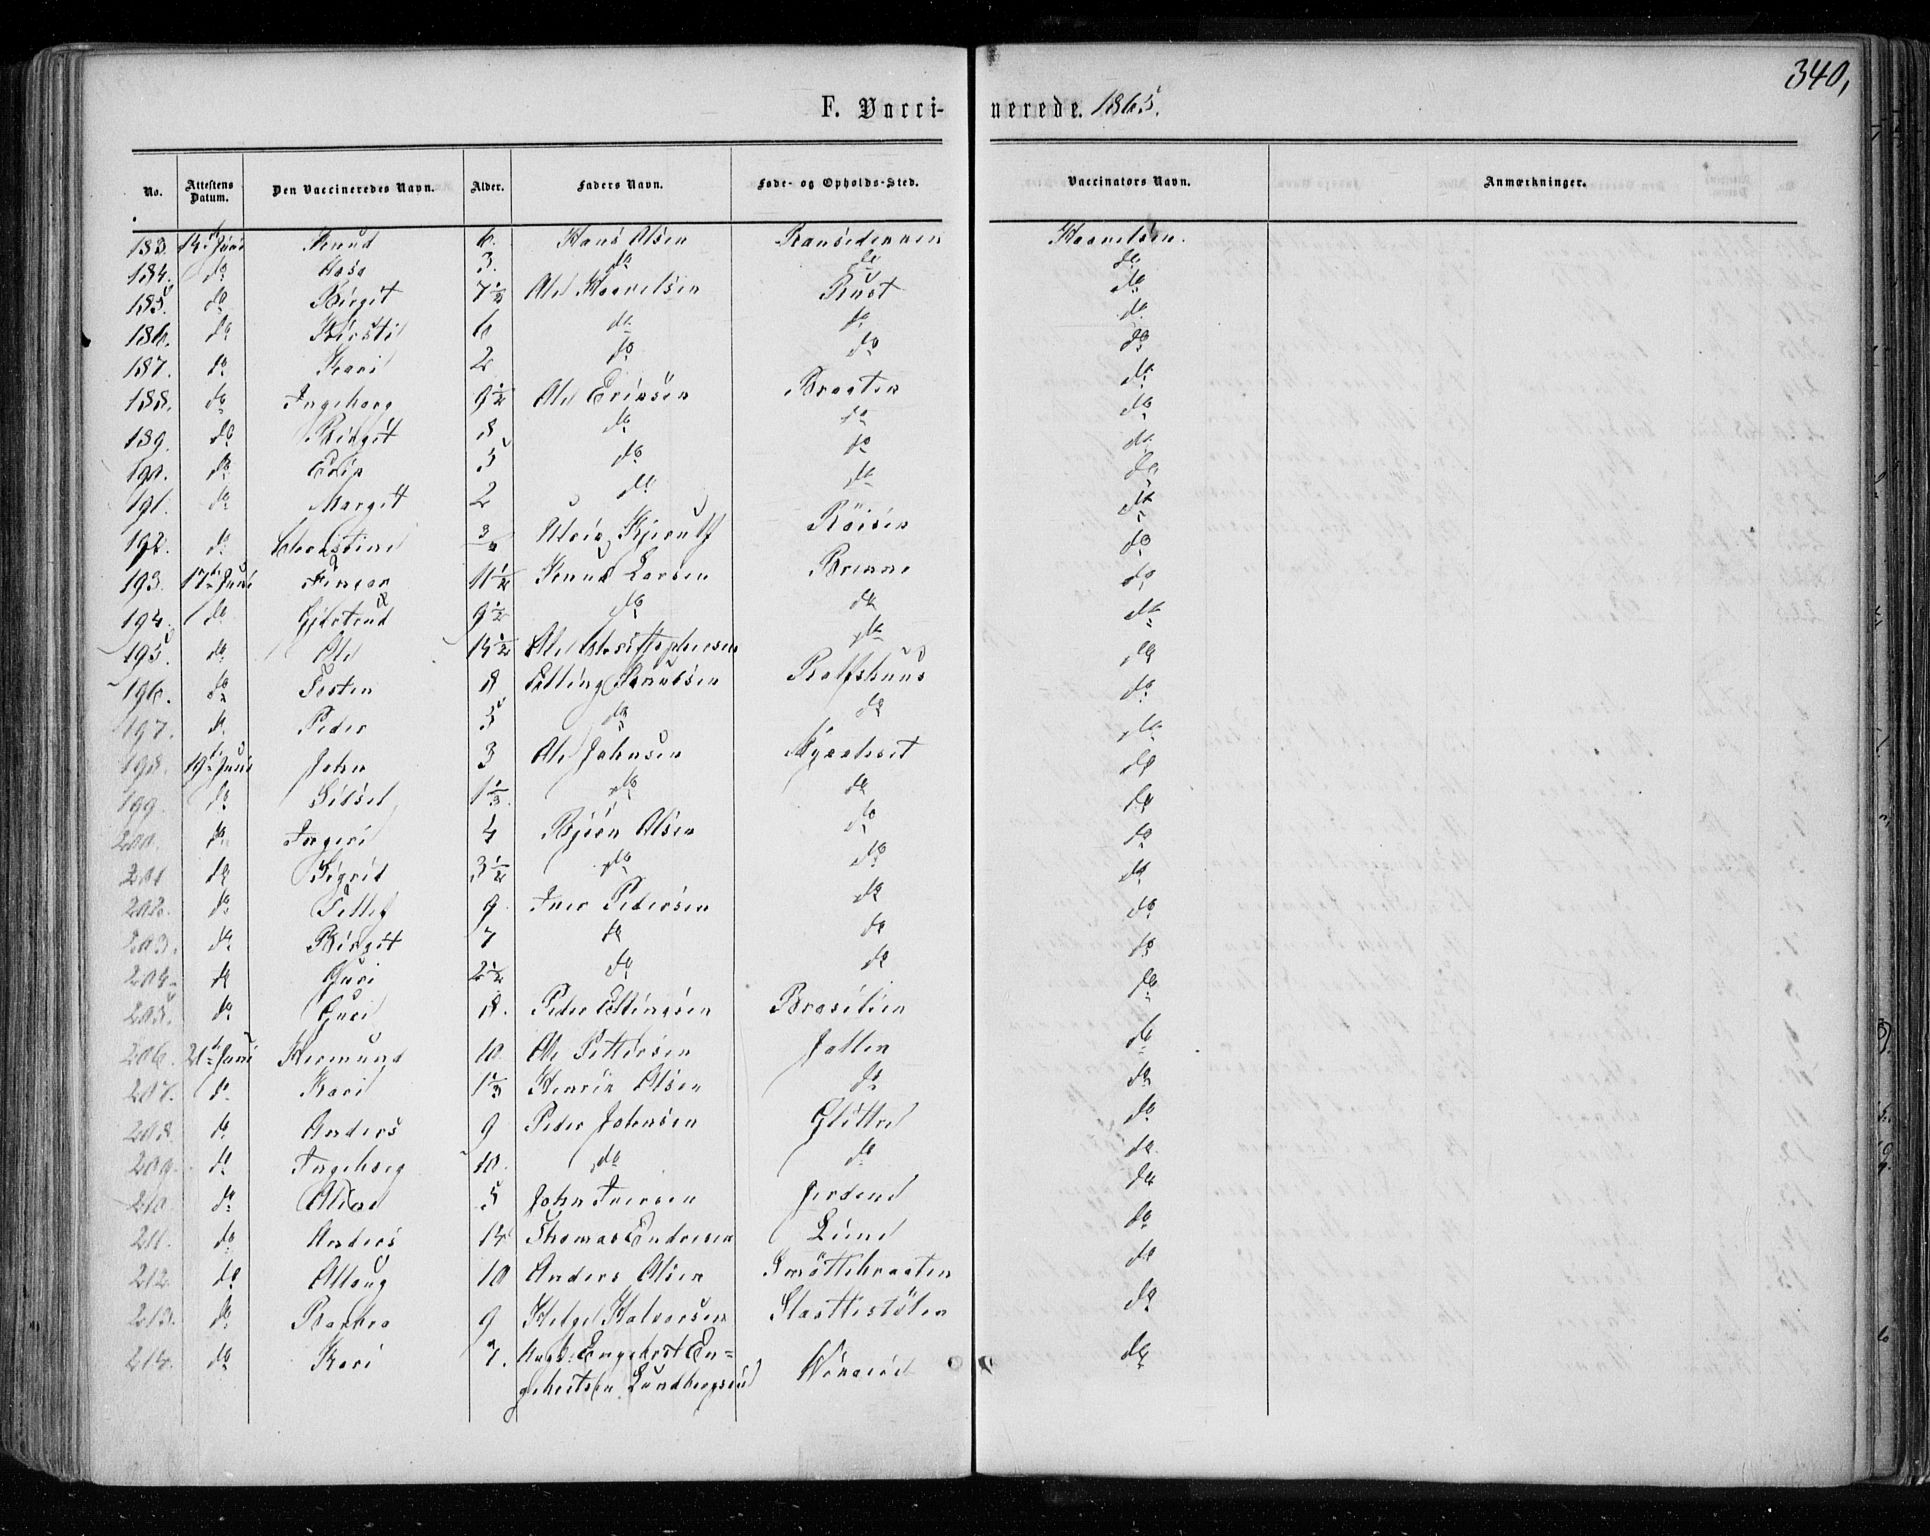 340,
F. Vaccinerede. 1865.
No. Attestens Datum. Den Vaccineredes Navn. Alder. Faders Navn. Føde- og Opholds-Sted. Vaccinators Navn. Anmærkninger.
183. 14de Juni Knud 6. Hans Olsen Haavelsen.
184. do Aase 3. do do do
185. do Birgit 7½ Ole Haavelsen Rust do
186. do Kirsti 6 do do do
187. do Kari 2 do do do
188. do Ingeborg 9½ Ole Eriksen Braaten do
189. do Birgit 8 do do do
190. do Erik 5 do do do
191. do Margit 2 do do do
192. do Christine ¾ do
193. 17de Juni 11½ Knud Larsen Brenne do
194. do Gjertrud 9½ do do do
195. do Ole 14½ Ole Christophersen do do
196. do Torsten 8 Elling Knudsen Rolfshuus do
197. do Peder 5 do do do
198. 19de Juni John 3 Ole Johnsen do
199. do Sidsel 1⅓ do do do
200. do Ingeri 4 Bjørn Olsen do do
201 do Sigrid 3½ do do do
202. do Tollef 9 Iver Pedersen do do
203. do Birgit 7 do do do
204. do Guri 2½ do do do
205. do Guri 8. Peder Ellingsen Brasilien do
206. 21de Juni Hermund 10 Ole Pettersen do
207. do Kari 1⅓ Henrik Olsen do do
208. do Anders 9 Peder Johnsen Glöttre do
209. do Ingeborg 10. do do do
210. do 5 John Iversen do
211. do Anders 14 Thomas Endresen Lunde do
212 do Allaug 10 Anders Olsen Smöttebraaten do
213. do Barbra 9 Helge Halvorsen Slaattestölen do
214. do Kari 7. Engebret En=
gebretsen Lundbergseie do